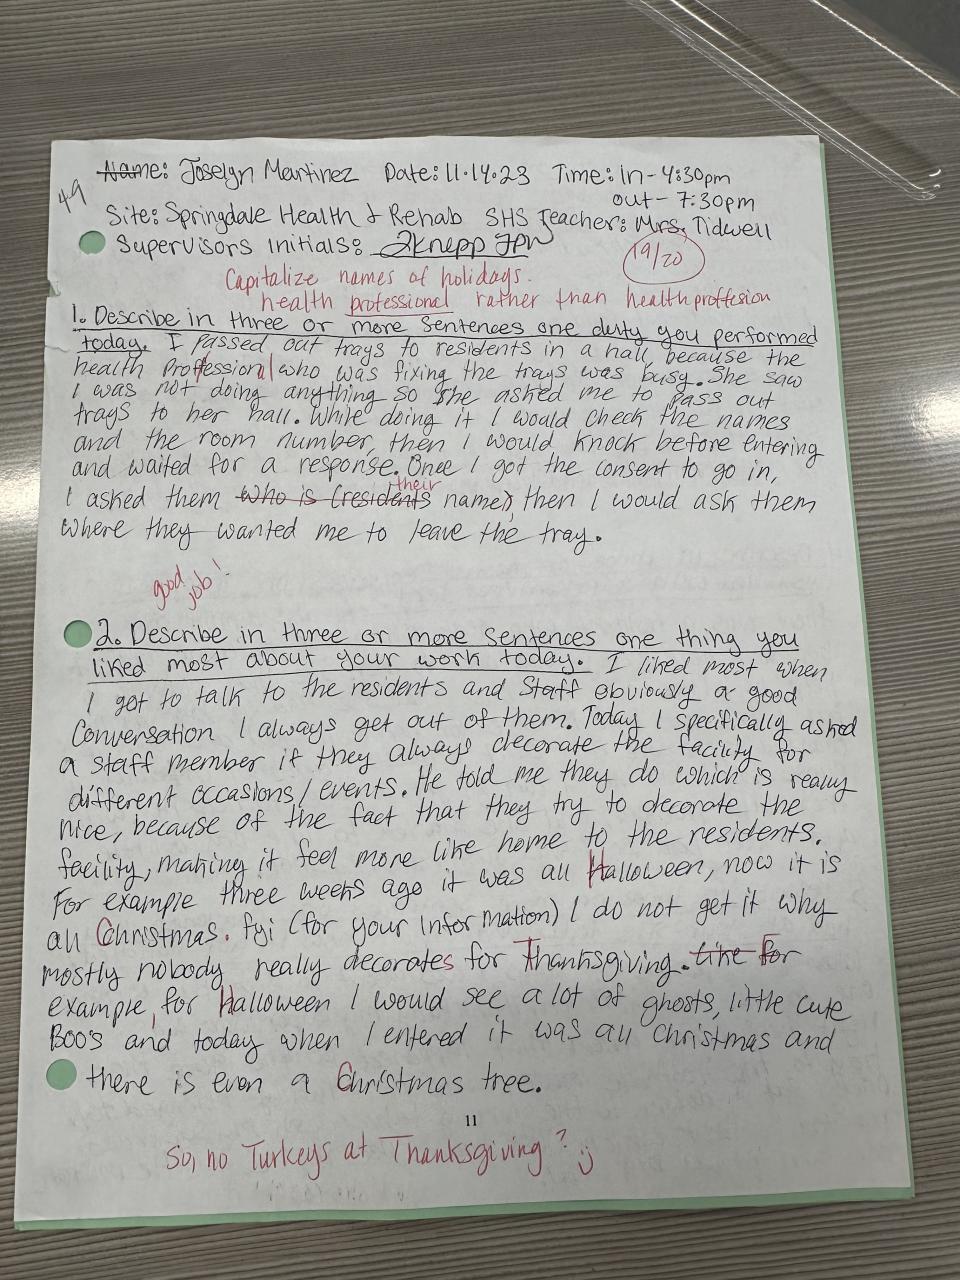 49
Name: Joselyn Martinez Date: 11.14.23 Time: in - 4:30pm
out - 7:30pm
Site: Springdale Health & Rehab SHS Teacher: Mrs. Tidwell
Supervisors Initials:
19/20
Capitalize names of holidays.
health professional rather than health proffesion
1. Describe in three or more sentences one duty you performed
today. I passed out trays to residents in a hall, because the
health Proffessional who was fixing the trays was busy. She saw
I was not doing anything so she asked me to pass out
trays to her hall. While doing it I would check the names
and the room number, then I would knock before entering
and waited for a response. Once I got the consent to go in,
their
I asked them who is (residents name), then I would ask them
where they wanted me to leave the tray.
good
job!
2. Describe in three or more sentences one thing you
liked most about your work today. I liked most when
I got to talk to the residents and Staff obviously a good
Conversation I always get out of them. Today I specifically asked
a staff member if they always decorate the facility for
different occasions/events. He told me they do which is really
nice, because of the fact that they try to decorate the
facility, making it feel more like home to the residents.
For example three weeks ago it was all Halloween, now it is
all Christmas. fyi (for your information) I do not get it why
mostly nobody really decorates for Thanksgiving. Like For
example, for Halloween I would see a lot of ghosts, little cute
Boo's and today when I entered it was all Christmas and
there is even a Christmas tree.
11
So, no Turkeys at Thanksgiving? :)